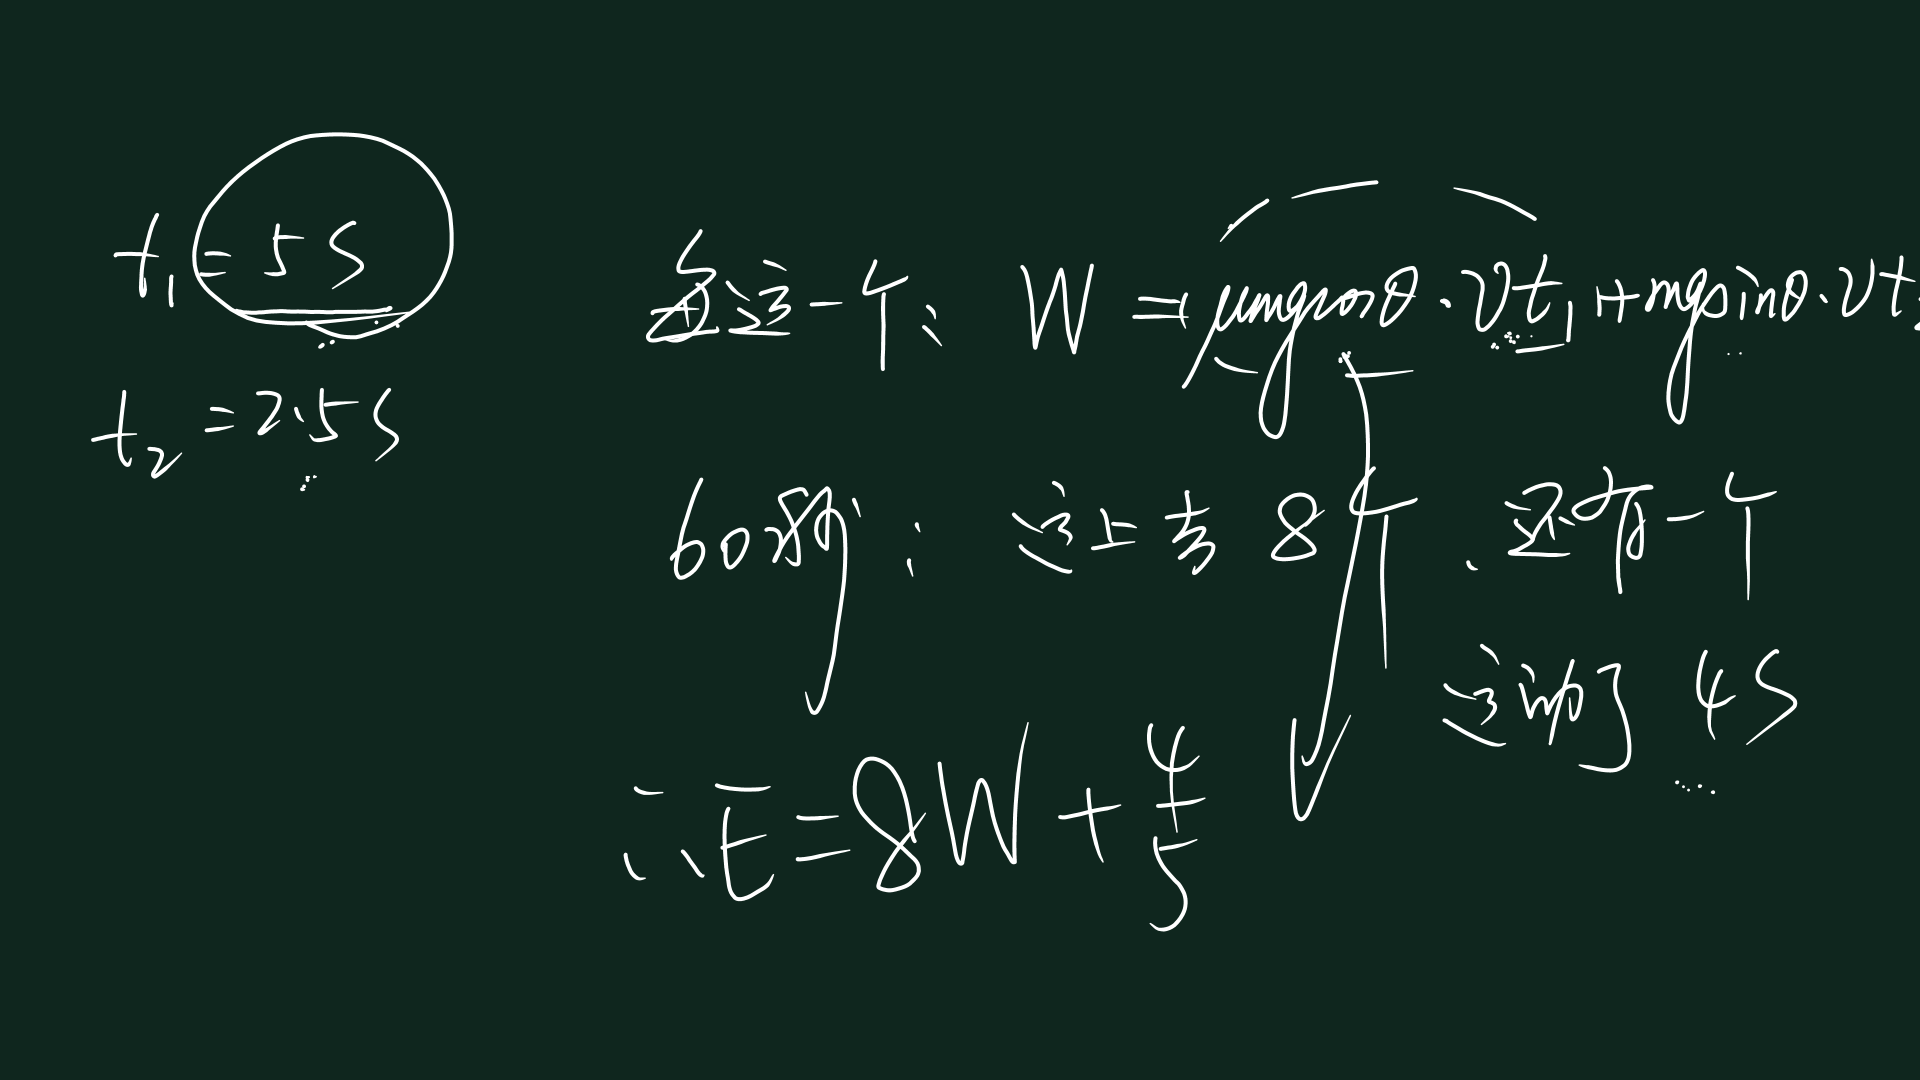 t₁ = 5S
每运一个: W = μmgcosθ·vt₁ + mgsinθ·vt₂
t₂ = 2.5S
60秒: 运上去8个、还有一个
运动了 4S
∴ E = 8W + 4/5